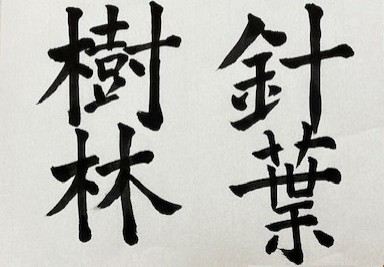 針葉
樹林